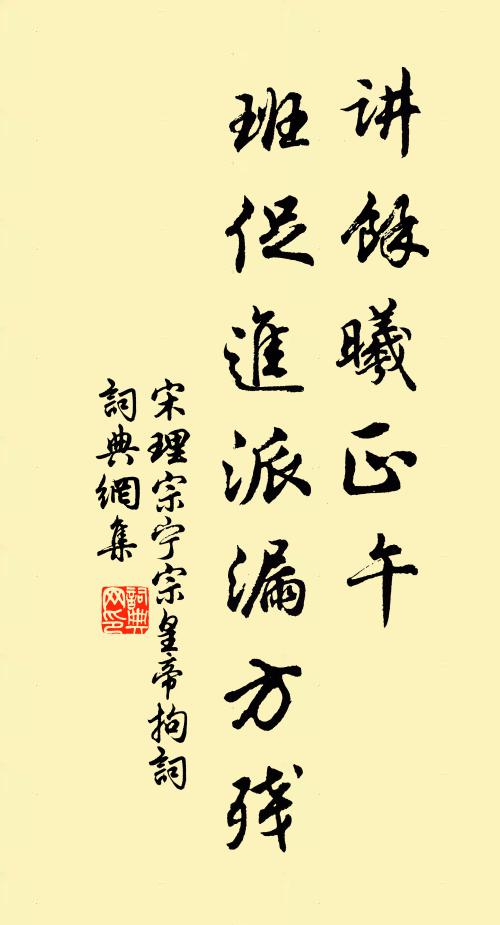 讲餘曦正午
班促進派漏方残
宋理宗宁宗皇帝拘詞
詞典網集
詞典网印